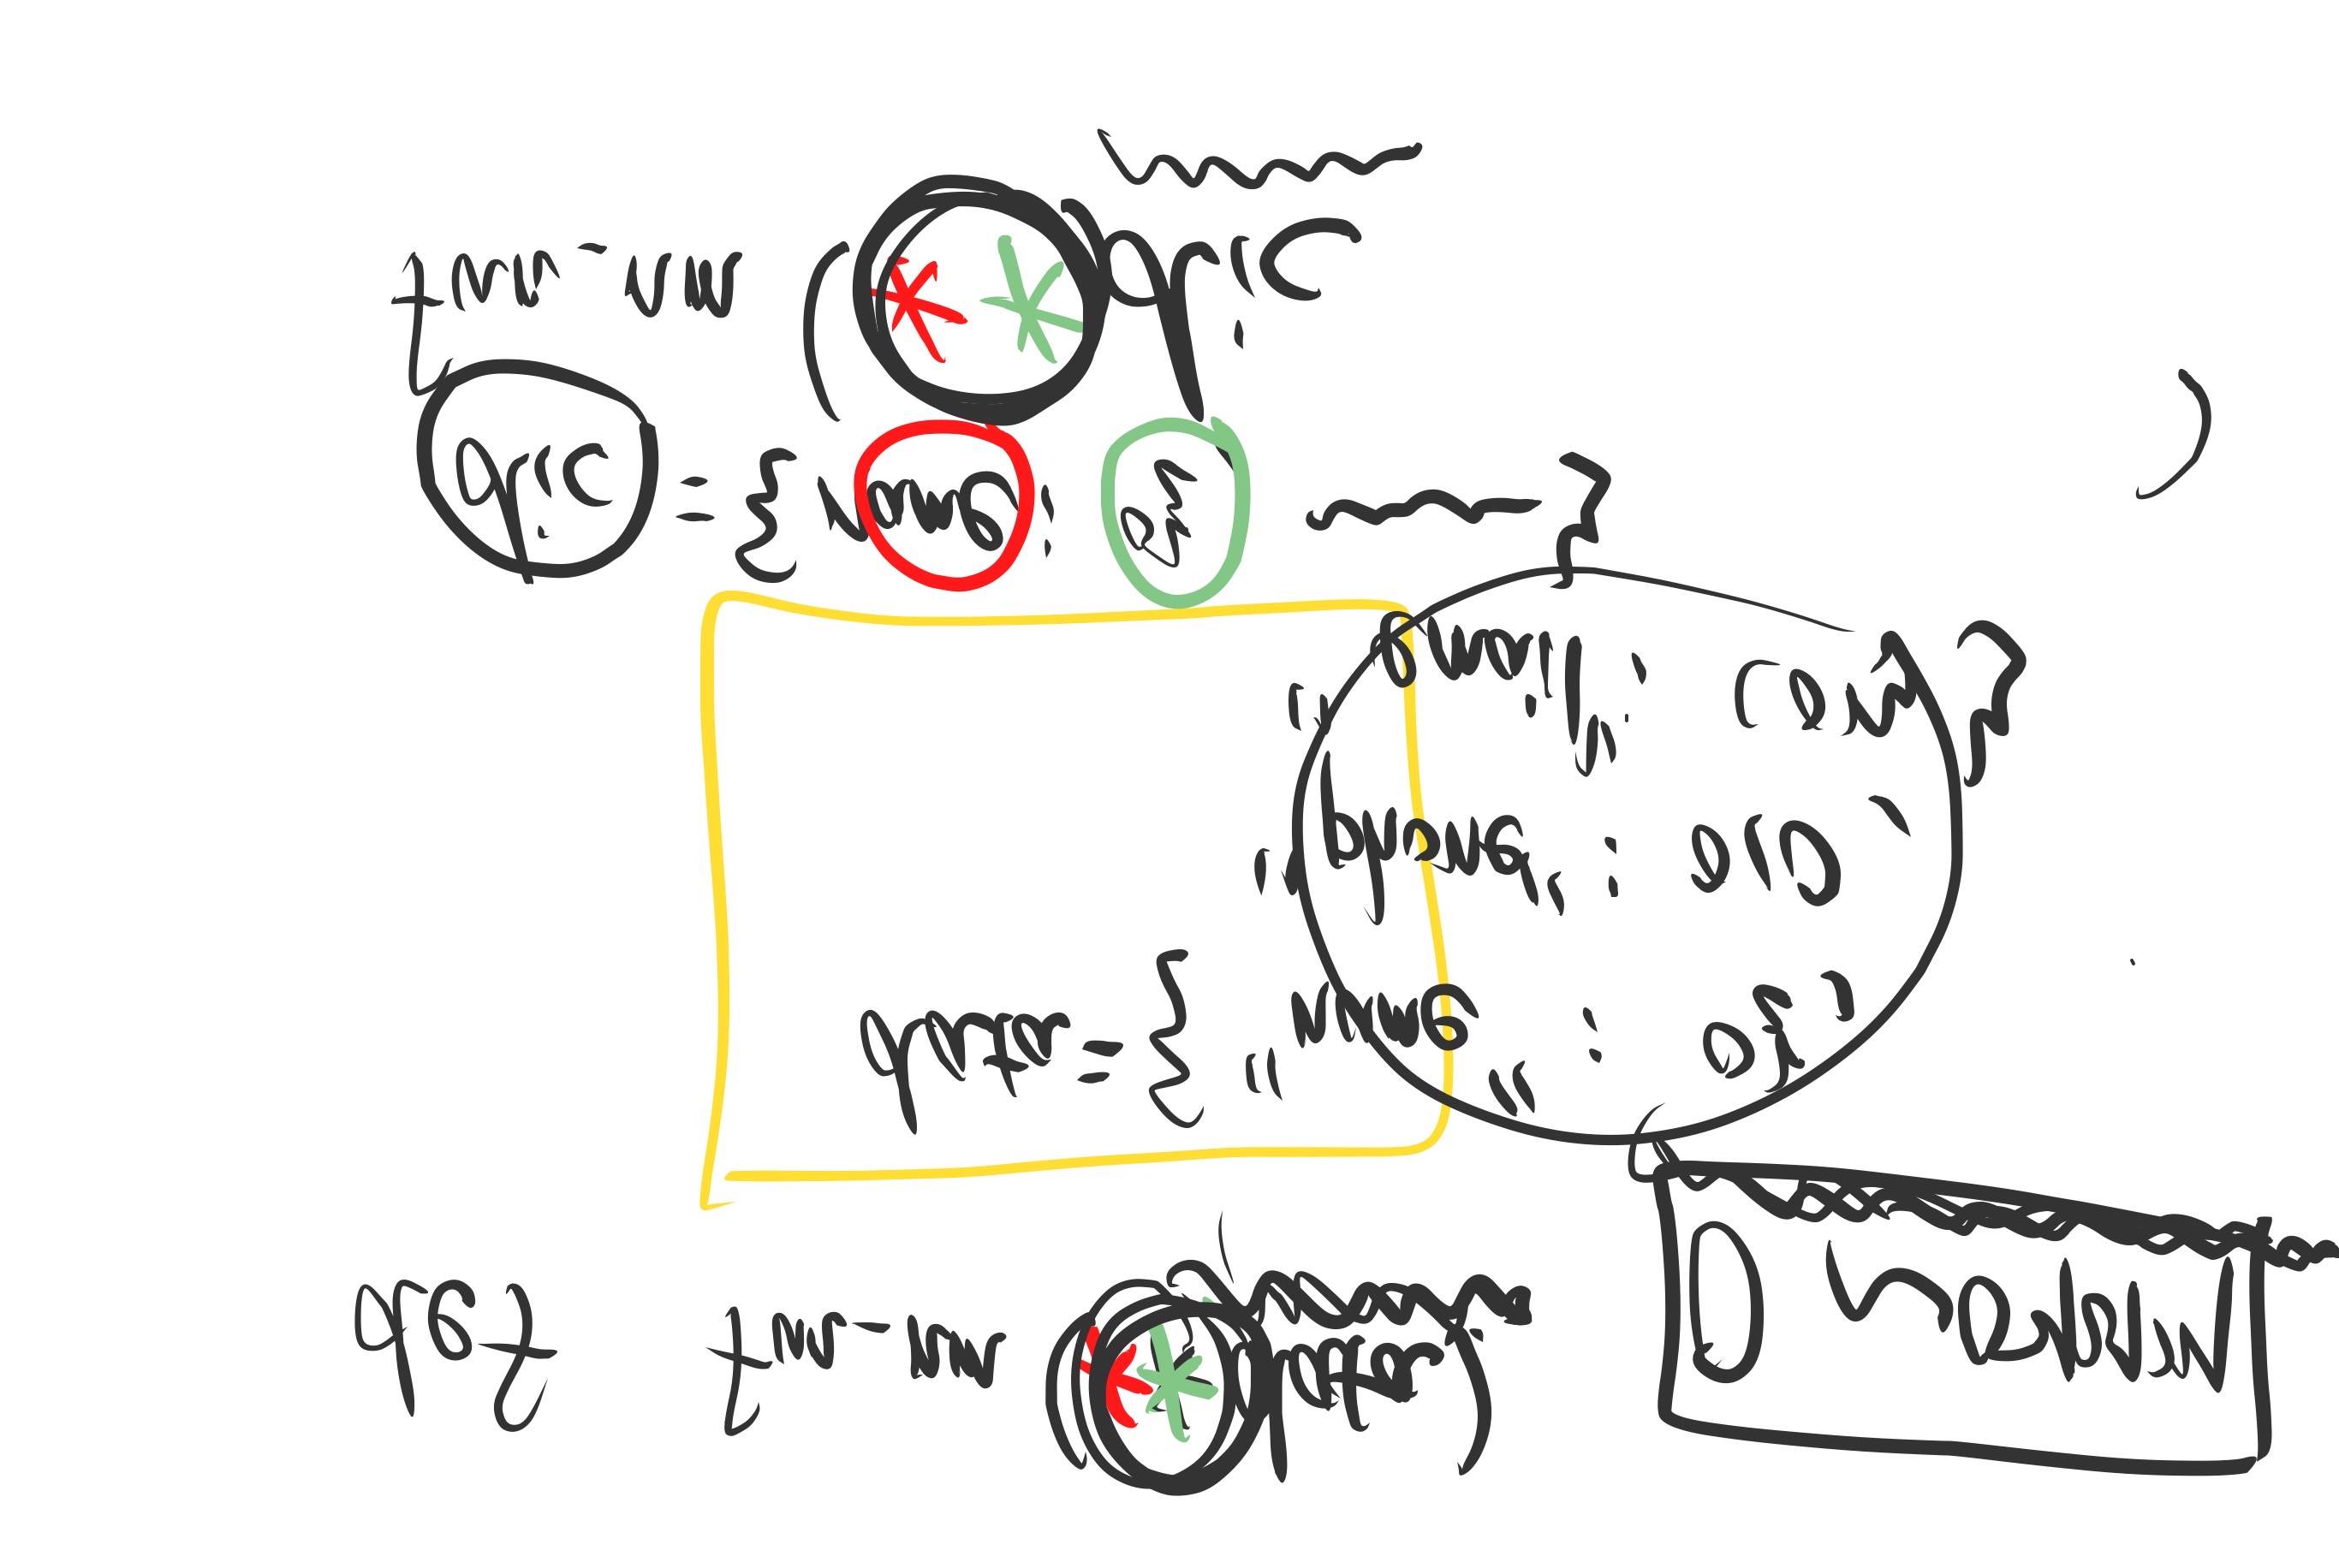 def fun_nm (**data)
data={ "name" : 이름,
"phone" : 010,
"email" : com }
dic={name: 이름 }
fun_nm (**dic
)